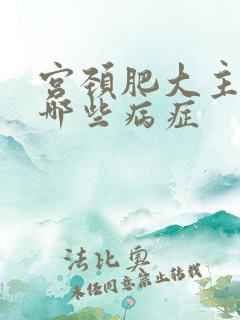 宫颈肥大主
哪些病症
法比奥
未经同意禁止转载